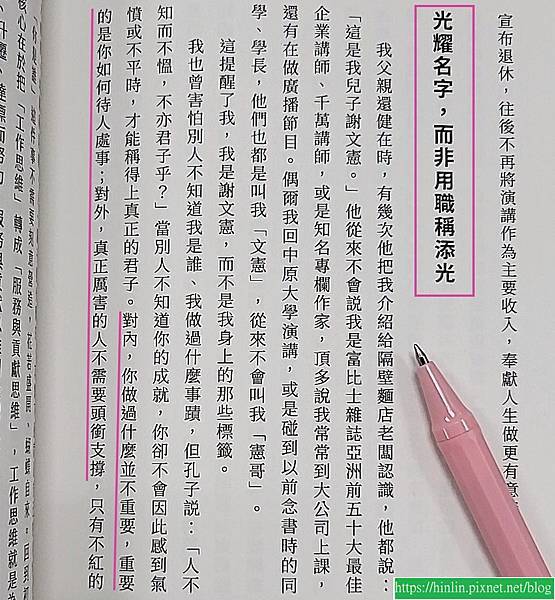 宣布退休，往後不再將演講作為主要收入，奉獻人生做更有意
光耀名字，而非用職稱添光
我父親還健在時，有幾次他把我介紹給隔壁麵店老闆認識，他都說：
「這是我兒子謝文憲。」他從來不會說我是富比士雜誌亞洲前五十大最佳
企業講師、千萬講師，或是知名專欄作家，頂多說我常常到大公司上課，
還有在做廣播節目。偶爾我回中原大學演講，或是碰到以前念書時的同
學、學長，他們也都是叫我「文憲」，從來不會叫我「憲哥」。
這提醒了我，我是謝文憲，而不是我身上的那些標籤。
我也曾害怕別人不知道我是誰、我做過什麼事蹟，但孔子說：「人不
知而不慍，不亦君子乎？」當別人不知道你的成就，你卻不會因此感到氣
憤或不平時，才能稱得上真正的君子。對內，你做過什麼並不重要，重要
的是你如何待人處事；對外，真正厲害的人不需要頭銜支撐，只有不紅的
核心在於把「工作思維」轉成「服務與貢獻思維」，工作思維就是
https://hinlin.pixnet.net/blog